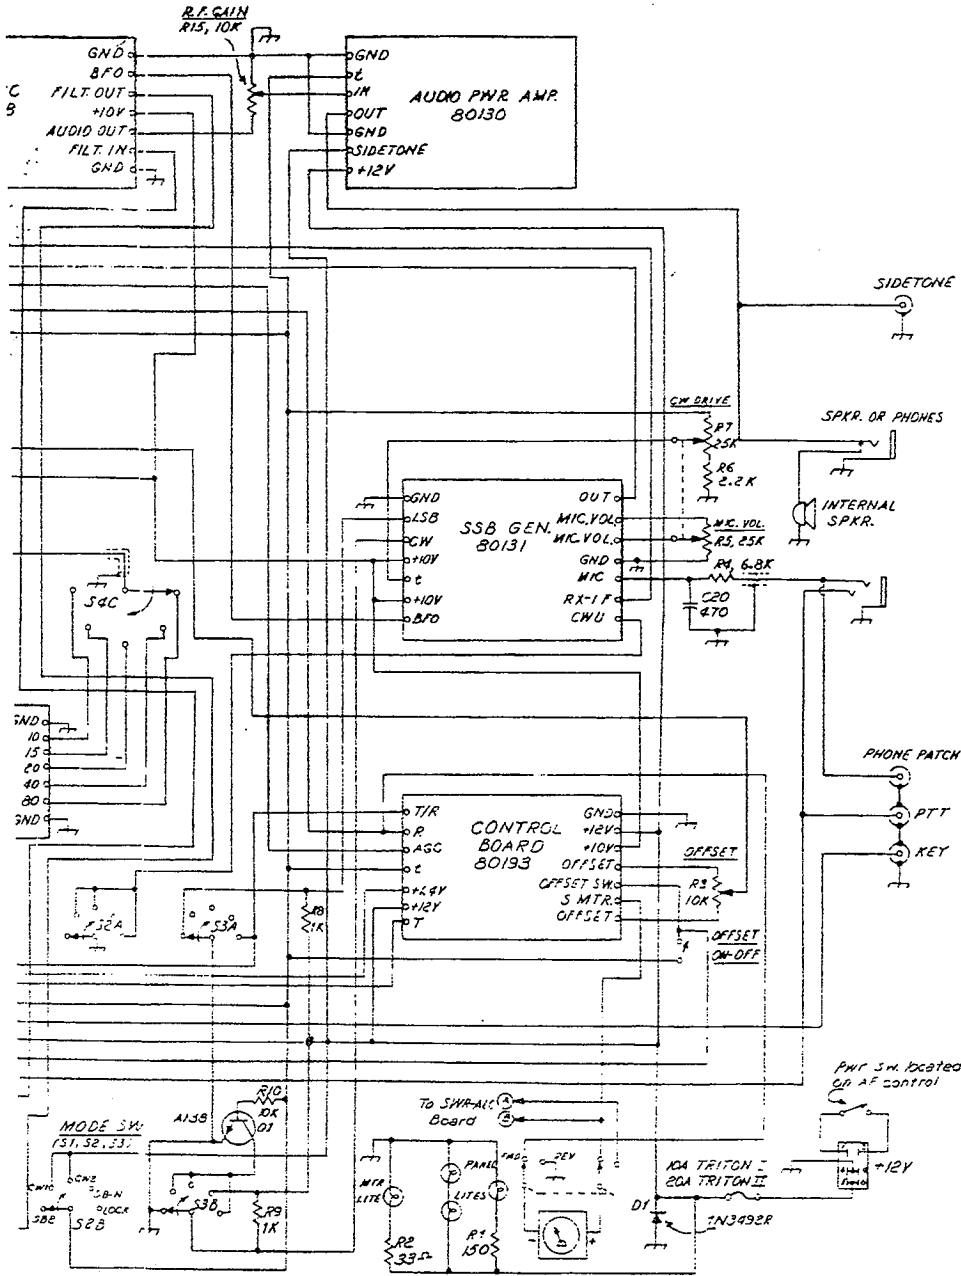 R.F. GAIN
R15, 10K
GND
BFO
FILT. OUT
+10V
AUDIO OUT
FILT. IN
GND
C
B
GND
t
IN
OUT
GND
SIDETONE
+12V
AUDIO PWR. AMP.
80130
SIDETONE
CW DRIVE
R7
25K
R6
2.2K
SPKR. OR PHONES
INTERNAL
SPKR.
GND
LSB
CW
+10V
t
+10V
BFO
SSB GEN.
80131
OUT
MIC. VOL
MIC. VOL.
GND
MIC
RX-IF
CWU
MIC. VOL.
R5, 25K
R4, 6.8K
C20
470
S4C
GND
10
15
20
40
80
GND
PHONE PATCH
PTT
KEY
T/R
R
AGC
t
+24V
+12V
T
CONTROL
BOARD
80193
GND
+12V
+10V
OFFSET
OFFSET SW.
S MTR.
OFFSET
OFFSET
R3
10K
OFFSET
ON-OFF
S2A
S3A
R8
1K
Pwr Sw. located
on AF control
+12V
A158
R10
10K
Q1
MODE SW.
(S1, S2, S3)
SB-N
LOCK
SB2
S2B
S3B
R9
1K
To SWR-ALC
Board
A
B
MTR
LITE
PANEL
LITES
R2
33Ω
R1
150
FWD
REV
-
+
10A TRITON I
20A TRITON II
D1
1N3492R